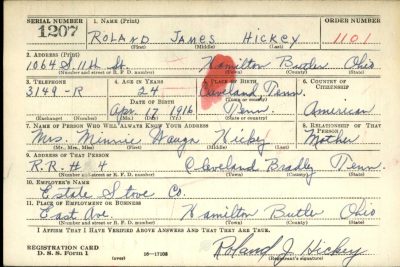 SERIAL NUMBER 1. NAME (Print) ORDER NUMBER
1207 ROLAND JAMES HICKEY 1101
(First) (Middle) (Last)
2. ADDRESS (Print)
1064 S. 11th St. Hamilton Butler Ohio
(Number and street or R. F. D. number) (Town) (County) (State)
3. TELEPHONE 4. AGE IN YEARS 5. PLACE OF BIRTH 6. COUNTRY OF CITIZENSHIP
3149-R 24 Cleveland Tenn.
DATE OF BIRTH (Town or county)
Apr. 17 1916 Tenn. American
(Exchange) (Number) (Mo.) (Day) (Yr.) (State or country)
7. NAME OF PERSON WHO WILL ALWAYS KNOW YOUR ADDRESS 8. RELATIONSHIP OF THAT PERSON
Mrs. Minnie Hickey Mother
(Mr., Mrs., Miss) (First) (Middle) (Last)
9. ADDRESS OF THAT PERSON
R.R. # 4 Cleveland Bradley Tenn.
(Number and street or R. F. D. number) (Town) (County) (State)
10. EMPLOYER'S NAME
Estate Stove Co.
11. PLACE OF EMPLOYMENT OR BUSINESS
East Ave Hamilton Butler Ohio
(Number and street or R. F. D. number) (Town) (County) (State)
I AFFIRM THAT I HAVE VERIFIED ABOVE ANSWERS AND THAT THEY ARE TRUE.
REGISTRATION CARD
D. S. S. Form 1 (over) 16—17105 Roland J. Hickey
(Registrant's signature)